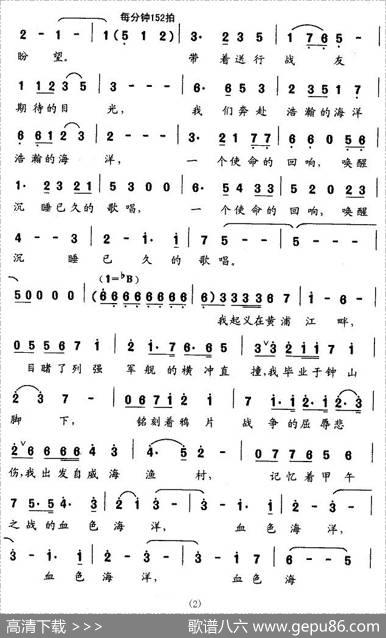 每分钟152拍
2 - 1 - | 1 (5 1 2) | 3· 2 3 5 | 1 7 6 5 - |
盼 望。 带 着 送 行 战 友
1 1 2 3 5 | 3 - - - | 6· 6 5 3 | 2 1 2 3 2 |
期待的目 光， 我 们奔赴 浩瀚的海洋
6 6 1 2 3 | 3 - - - | 3· 2 1 7 7 | 6 6 0 5 6 |
浩瀚的海 洋， 一 个使命的 回响，唤醒
1· 2 3 2 1 | 5 3 0 0 | 6· 5 4 3 3 | 5 5 0 2 3 |
沉 睡已久的 歌唱， 一 个使命的 回响，唤醒
4 - - 3 | 2 - 1· 1 | 7 5 - - | 5 - - - |
沉 睡 已 久 的 歌唱。
(1=♭B)
5 0 0 0 0 | (6 6 6 6 6 6 6 6 | 6) 3 3 3 3 3 6 7 | 1 - 6 - |
我起义在黄浦 江 畔，
0 5 5 5 6 7 1 | 2 1· 7 6· 5 | 3 3 2 2 1 1 7 1 |
目睹了列强 军舰的横冲直 撞，我毕业于钟山
2 3 7 - | 0 6 7 1 2 1 | 5· 1 2 1 2· 3 |
脚 下， 铭刻着鸦片 战争的屈辱悲
2 6 6 6 6 4 3 | 4· 5 2 - | 0 7 7 6 5 6 |
伤，我出发自威海 渔 村， 记忆着甲午
7 5· 5 4· 3 | 2 1 2 3 - | 3 - 1· 2 |
之战的血色海 洋， 血色海 洋，
3 - 1· 1 | 3 - - - | 3 - 1 7 | 6 - - 5 |
血色海 洋， 血色海
(2)
高清下载 >>>
歌谱八六 www.gepu86.com